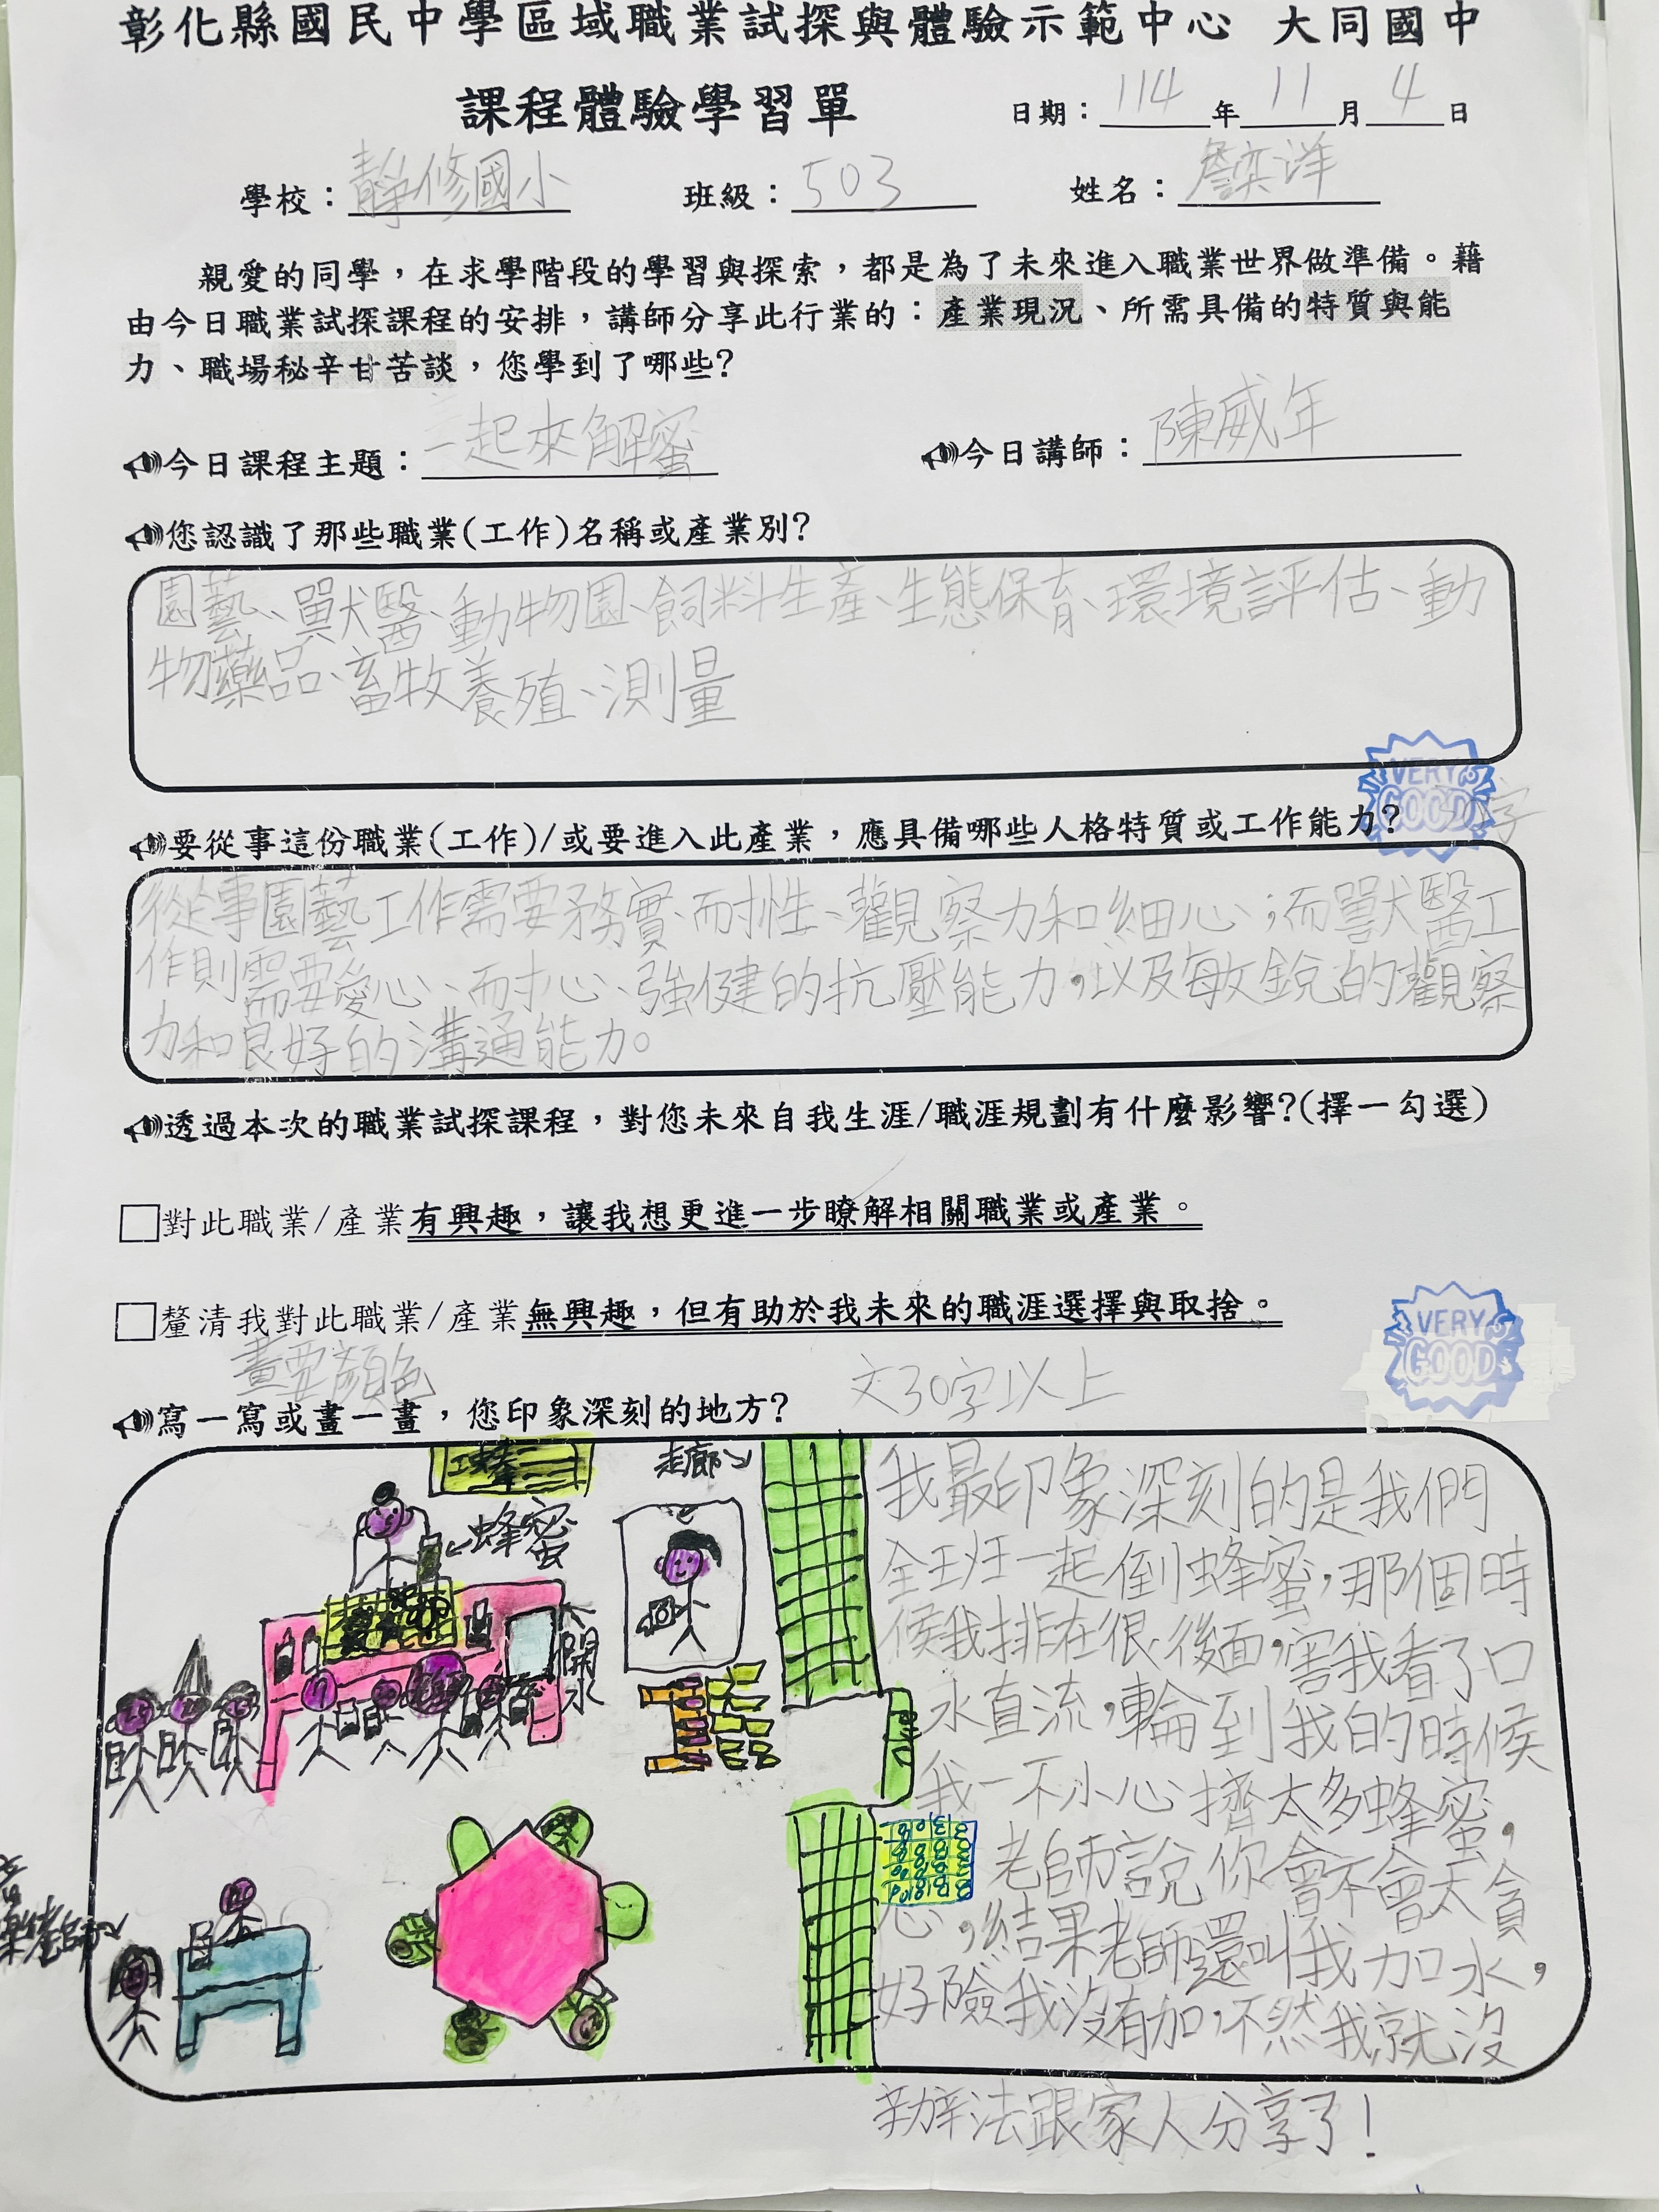 彰化縣國民中學區域職業試探與體驗示範中心 大同國中
課程體驗學習單
日期：114年11月4日
學校：靜修國小 班級：503 姓名：詹奕洋
親愛的同學，在求學階段的學習與探索，都是為了未來進入職業世界做準備。藉
由今日職業試探課程的安排，講師分享此行業的：產業現況、所需具備的特質與能
力、職場秘辛甘苦談，您學到了哪些？
今日課程主題：一起來解蜜 今日講師：陳威年
您認識了那些職業(工作)名稱或產業別？
園藝、獸醫、動物園、飼料生產、生態保育、環境評估、動
物藥品、畜牧養殖、測量
VERY
GOOD
字
要從事這份職業(工作)/或要進入此產業，應具備哪些人格特質或工作能力？
從事園藝工作需要務實、耐性、觀察力和細心；而獸醫工
作則需要愛心、耐心、強健的抗壓能力，以及敏銳的觀察
力和良好的溝通能力。
透過本次的職業試探課程，對您未來自我生涯/職涯規劃有什麼影響？(擇一勾選)
□對此職業/產業有興趣，讓我想更進一步瞭解相關職業或產業。
□釐清我對此職業/產業無興趣，但有助於我未來的職涯選擇與取捨。
VERY
GOOD
畫要顏色
文30字以上
寫一寫或畫一畫，您印象深刻的地方？
工蜂
走廊
蜂蜜
開水
老師
我最印象深刻的是我們
全班一起倒蜂蜜，那個時
候我排在很後面，害我看了口
水直流，輪到我的時候
我一不小心擠太多蜂蜜，
老師說你會不會太貪
心，結果老師還叫我加水，
好險我沒有加，不然我就沒
辦法跟家人分享了！